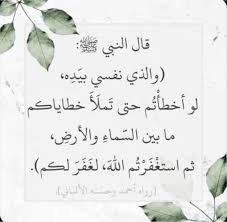 قال النبي ﷺ:
(والذي نفسي بيَدِه،
لو أخطأْتُم حتى تَملَأَ خطاياكم
ما بين السّماءِ والأرضِ،
ثم استغْفَرْتُم اللهَ، لغَفَرَ لكم).
[رواه أحمد وحسنه الألباني].